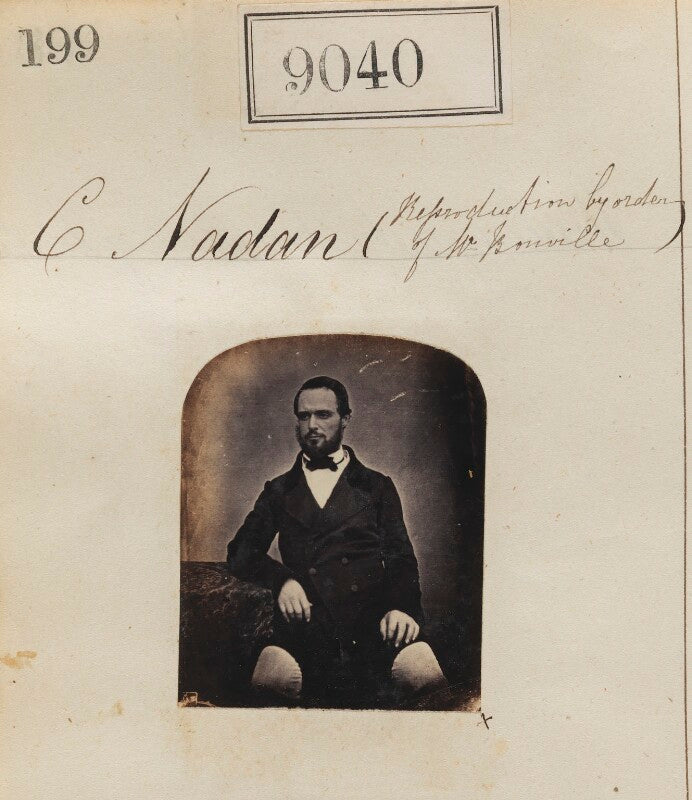 199
9040
C Nadan (Reproduction by order
of Mr Bonville)
x